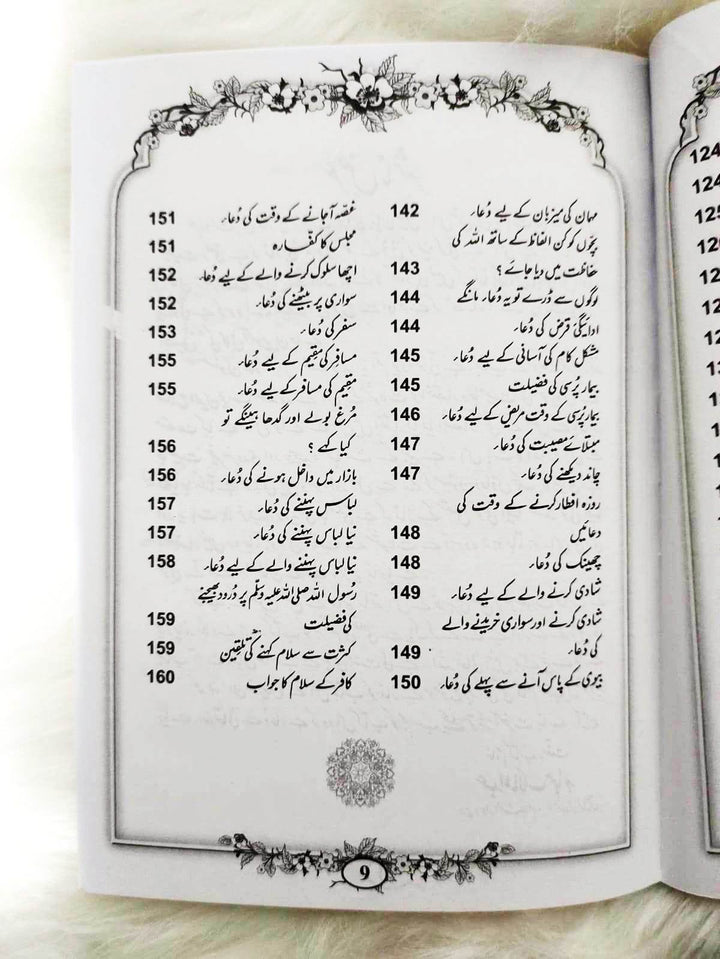 مہمان کی میزبان کے لیے دُعاء 142
بچّوں کو کن الفاظ کے ساتھ اللہ کی
حفاظت میں دیا جائے؟ 143
لوگوں سے ڈرے تو یہ دُعاء مانگے 144
ادائیگیٔ قرض کی دُعاء 144
مشکل کام کی آسانی کے لیے دُعاء 145
بیمار پُرسی کی فضیلت 145
بیمار پُرسی کے وقت مریض کے لیے دُعاء 146
مبتلائے مصیبت کی دُعاء 147
چاند دیکھنے کی دُعاء 147
روزہ افطار کرنے کے وقت کی
دعائیں 148
چھینک کی دُعاء 148
شادی کرنے والے کے لیے دُعاء 149
شادی کرنے اور سواری خریدنے والے
کی دُعاء 149
بیوی کے پاس آنے سے پہلے کی دُعاء 150
غصّہ آجانے کے وقت کی دُعاء 151
مجلس کا کفّارہ 151
اچھا سلوک کرنے والے کے لیے دُعاء 152
سواری پر بیٹھنے کی دُعاء 152
سفر کی دُعاء 153
مسافر کی مقیم کے لیے دُعاء 155
مقیم کی مسافر کے لیے دُعاء 155
مُرغ بولے اور گدھا ہینگے تو
کیا کہے؟ 156
بازار میں داخل ہونے کی دُعاء 156
لباس پہننے کی دُعاء 157
نیا لباس پہننے کی دُعاء 157
نیا لباس پہننے والے کے لیے دُعاء 158
رسُول اللہ صلی اللہ علیہ وسلّم پر دُرود بھیجنے
کی فضیلت 159
کثرت سے سلام کہنے کی تلقین 159
کافر کے سلام کا جواب 160
9
124
124